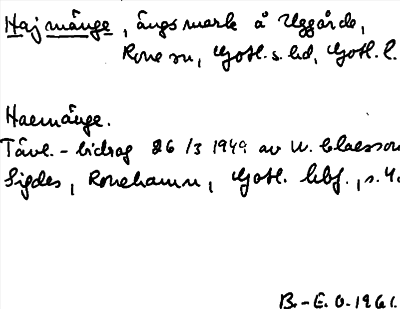 Hajmänge, ängsmark å Uggårde,
Rone sn, Gotl. s. hd, Gotl. l.
Haemänge.
Tävl.-bidrag 26/3 1949 av W. Claesson
Sigdes, Ronehamn, Gotl. , s. 4.
B.-E. O. 1961.